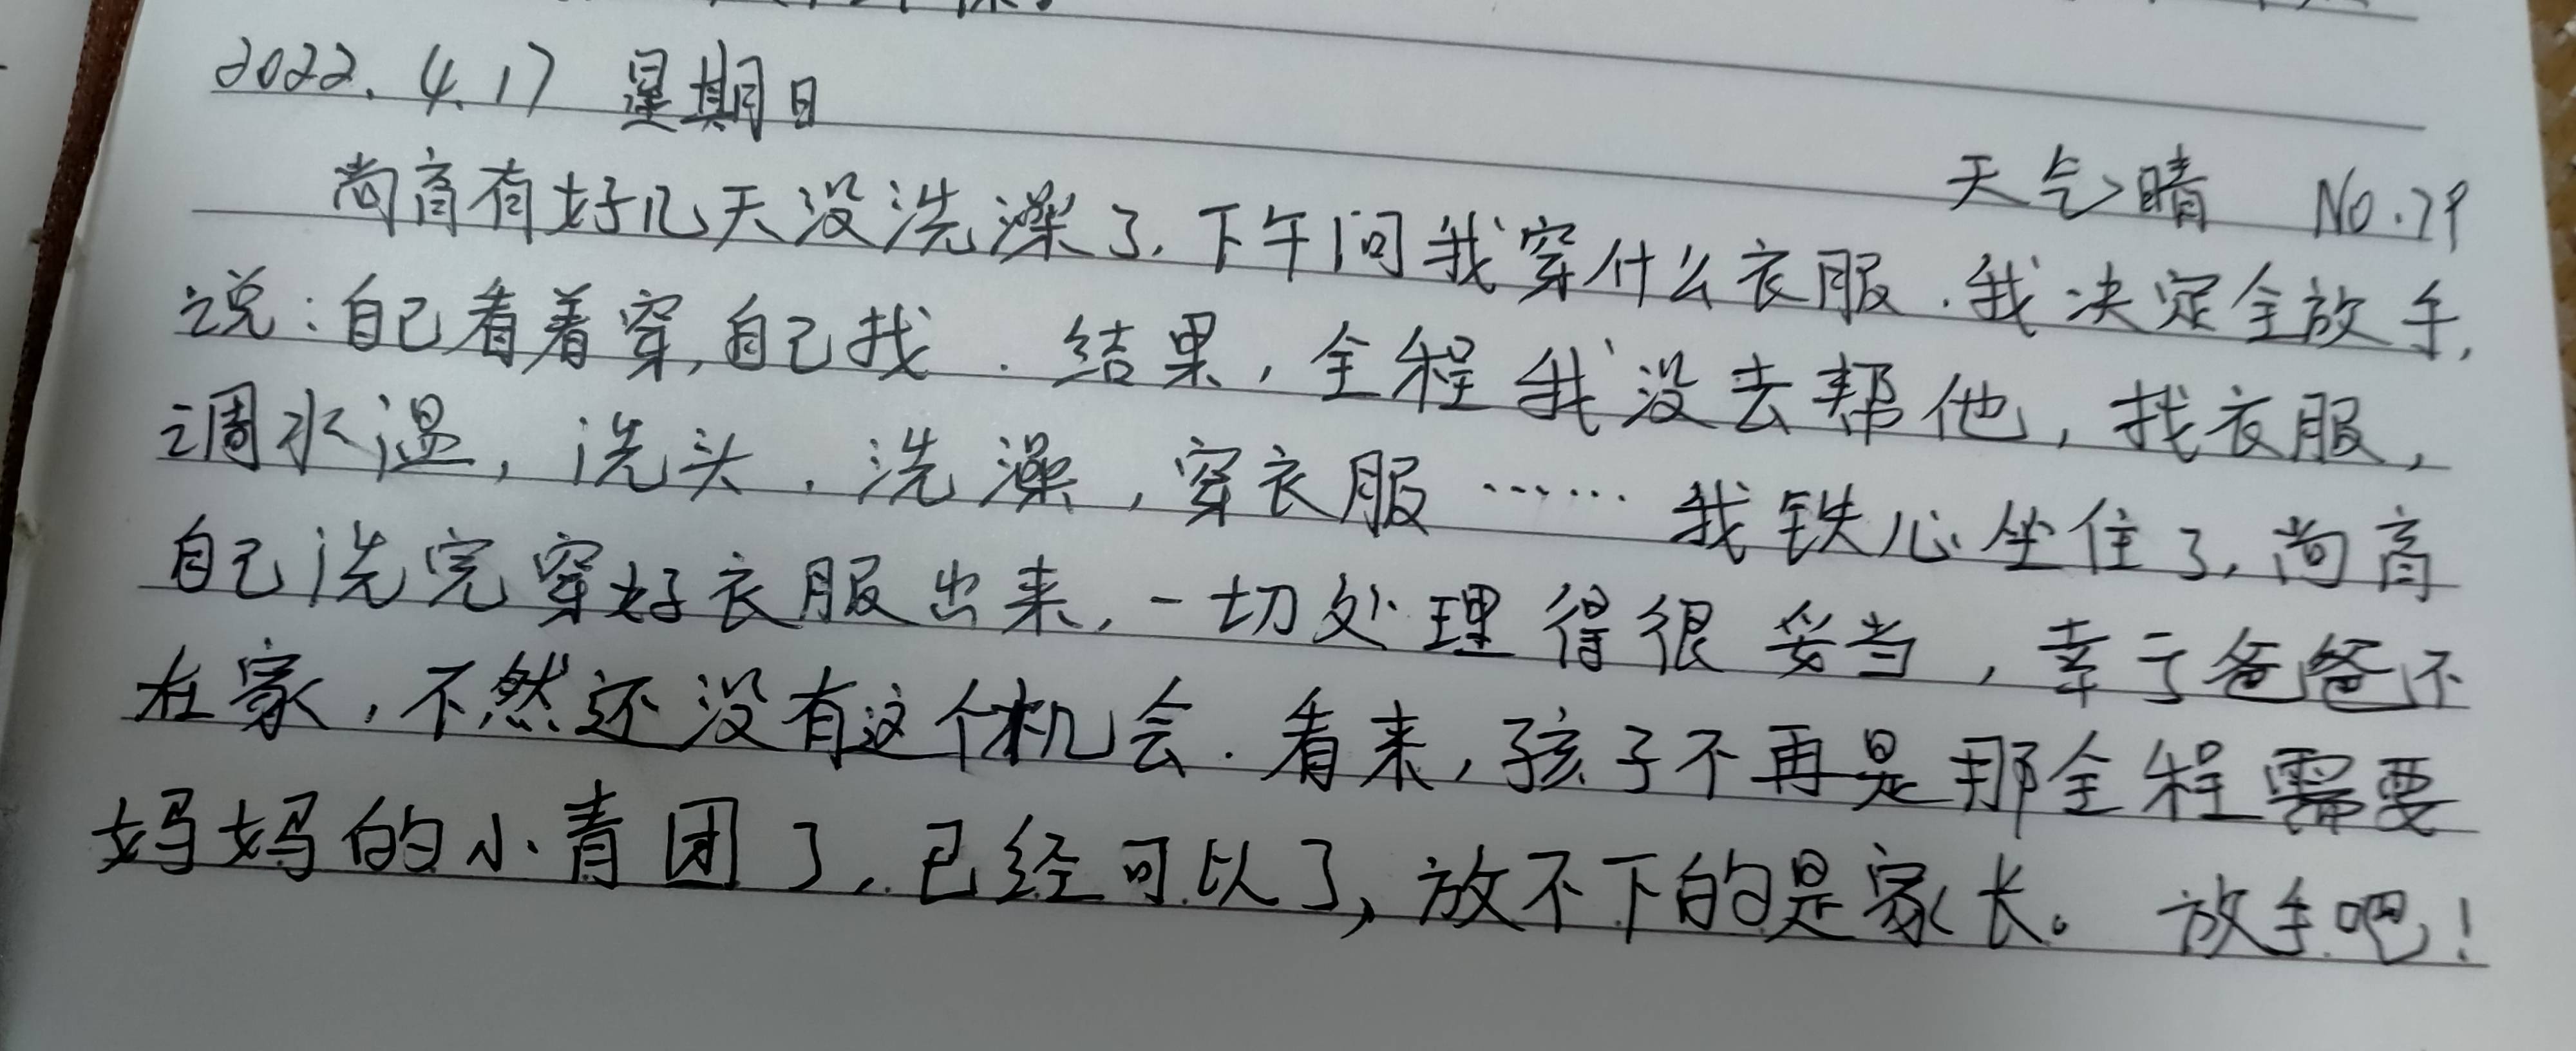 2022.4.17 星期日
天气晴 No.79
尚育有好几天没洗澡了,下午问我穿什么衣服.我决定全放手,
说:自己看着穿,自己找.结果,全程我没去帮他,找衣服,
调水温,洗头,洗澡,穿衣服……我铁心坐住了,尚育
自己洗完穿好衣服出来,一切处理得很妥当,幸亏爸爸不
在家,不然还没有这个机会.看来,孩子不再是那全程需要
妈妈的小青团了,已经可以了,放不下的是家长。放手吧!